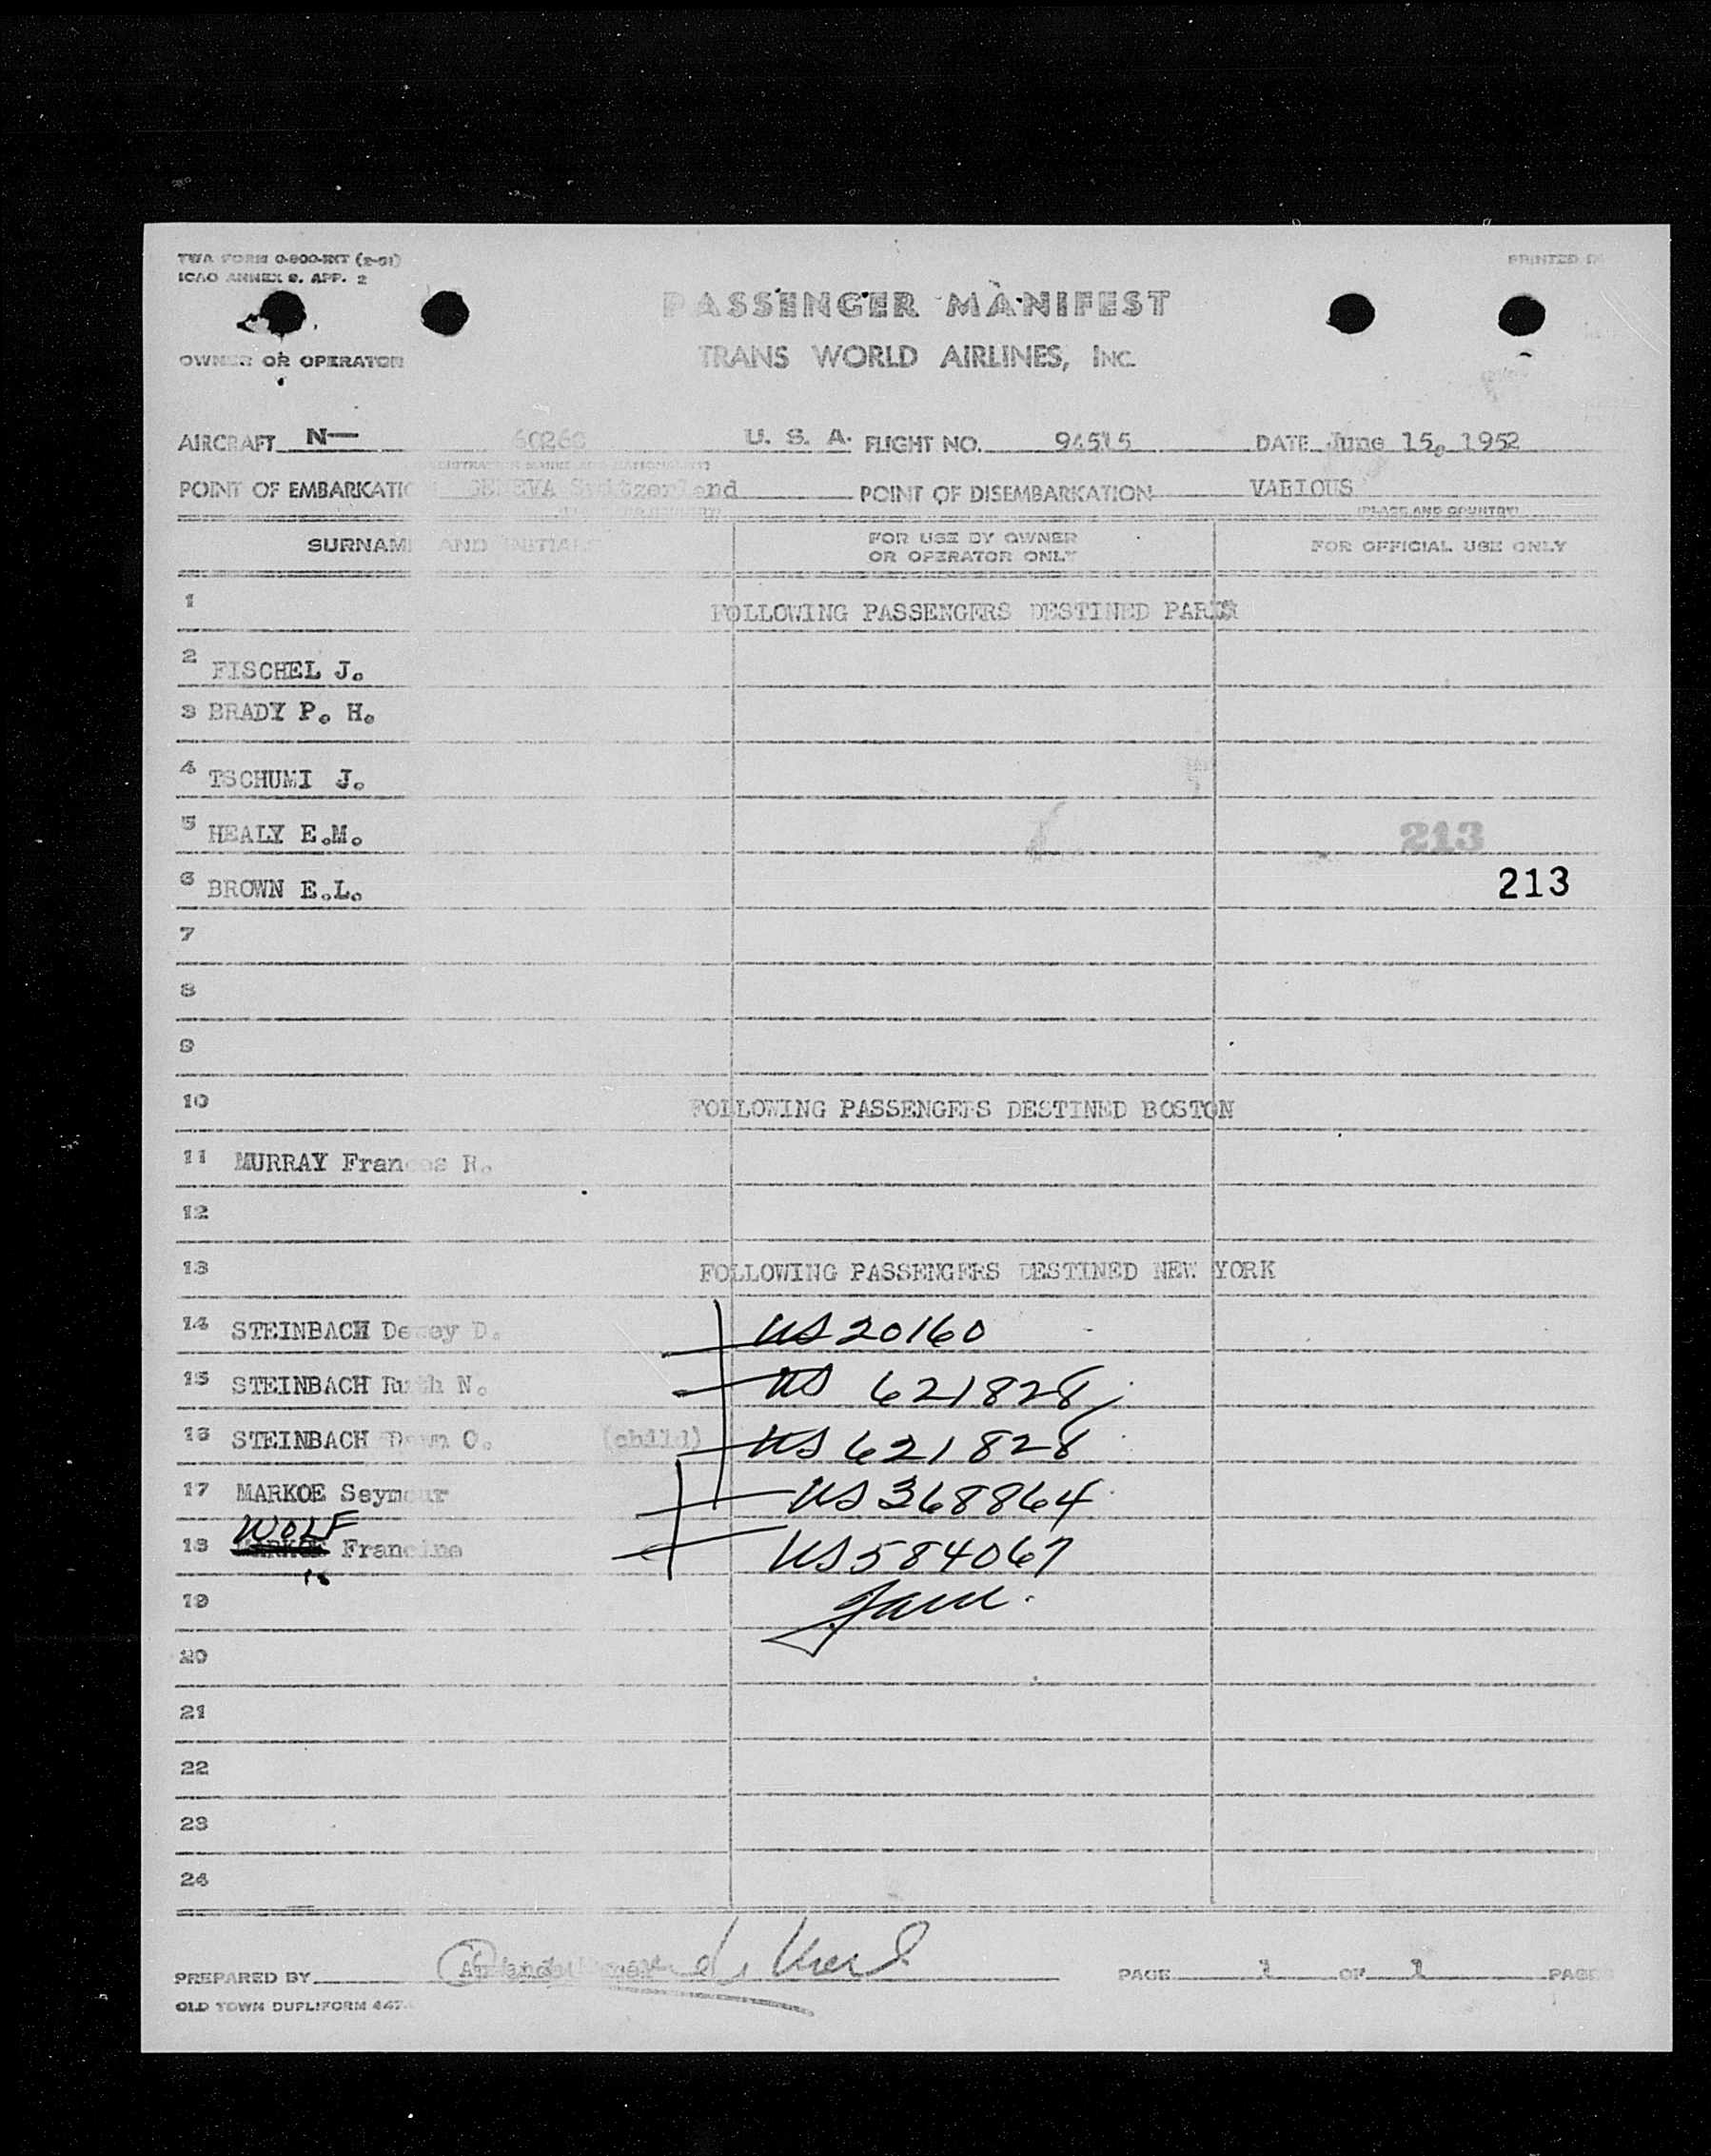 TWA FORM 0-800-INT (2-51)
ICAO ANNEX 9. APP. 2
PRINTED IN
PASSENGER MANIFEST
OWNER OR OPERATOR
TRANS WORLD AIRLINES, INC.
AIRCRAFT N— U. S. A. FLIGHT NO. 94515 DATE June 15, 1952
POINT OF EMBARKATIO GENEVA Switzerland POINT OF DISEMBARKATION VARIOUS
(PLACE AND COUNTRY)
SURNAME AND INITIALS FOR USE BY OWNER OR OPERATOR ONLY FOR OFFICIAL USE ONLY
1 FOLLOWING PASSENGERS DESTINED PARIS
2 FISCHEL J.
3 BRADY P. H.
4 TSCHUMI J.
5 HEALY E.M. 213
6 BROWN E.L. 213
7
8
9
10 FOLLOWING PASSENGERS DESTINED BOSTON
11 MURRAY Frances R.
12
13 FOLLOWING PASSENGERS DESTINED NEW YORK
14 STEINBACH Dewey D. US 20160
15 STEINBACH Ruth N. US 621828
16 STEINBACH Dawn O. (child) US 621828
17 MARKOE Seymour US 368864
WOLF
18 MARKOE Francine US 584067
19
20
21
22
23
24
PREPARED BY PAGE 1 OF 1 PAGES
OLD TOWN DUPLIFORM 447